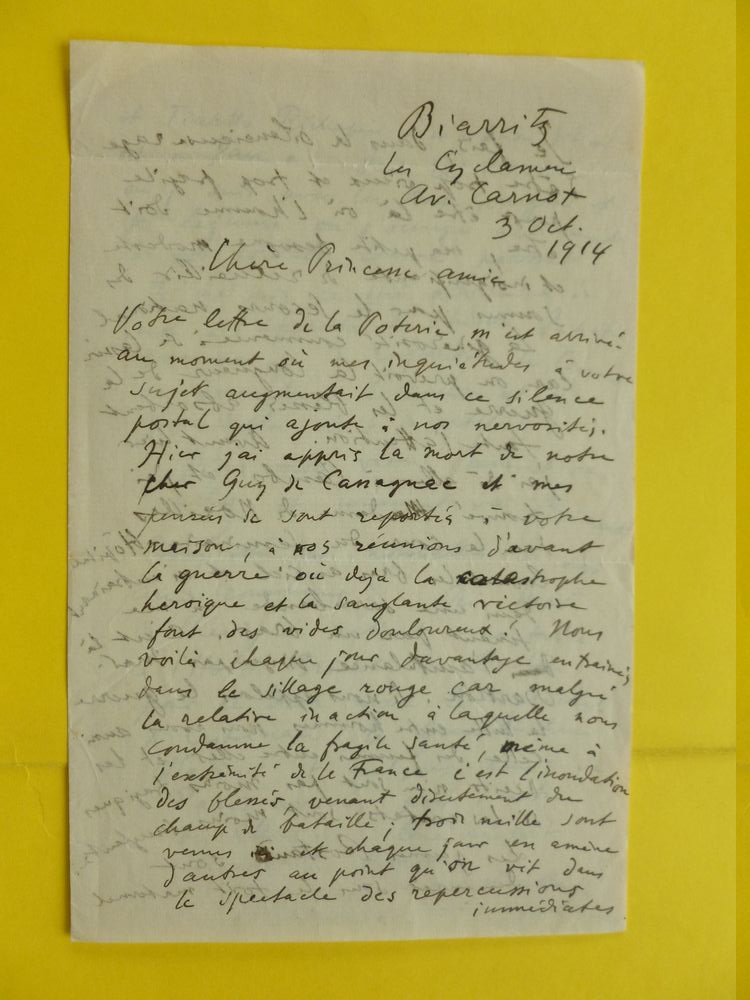 Biarritz
Les Cyclamens
Av. Carnot
3 Oct.
1914
Chère Princesse amie
Votre lettre de la Poterie, m'est arrivée
au moment où mes inquiétudes à votre
sujet augmentait dans ce silence
postal qui ajoute à nos nervosités.
Hier j'ai appris la mort de notre
cher Guy de Cassagnac et mes
pensées se sont reportées à votre
maison, à nos réunions d'avant
la guerre où déjà la catastrophe
heroïque et la sanglante victoire
font des vides douloureux! Nous
voilà chaque jour davantage entrainés
dans le sillage rouge car malgré
la relative inaction à laquelle nous
condamne la fragile santé, même à
l'extrémité de la France c'est l'inondation
des blessés, venant directement du
champ de bataille; trois mille sont
venus ici et chaque jour en amène
d'autres au point qu'on vit dans
le spectacle des repercussions
immédiates